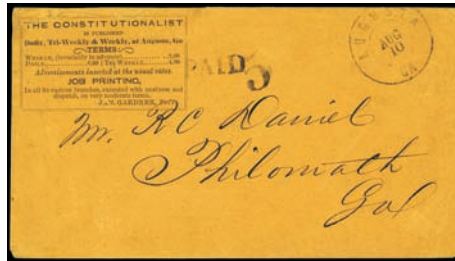 THE CONSTITUTIONALIST
IS PUBLISHED
Daily, Tri-Weekly & Weekly, at Augusta, Ga
TERMS
WEEKLY, (invariably in advance) 2,00
DAILY, TRI-WEEKLY,
Advertisements inserted at the usual rates
JOB PRINTING,
In all its various branches, executed with neatness and
dispatch, on very moderate terms.
JAS. GARDNER, Prop.
PAID 5
AUGUSTA
AUG
10
GA
Mr. R C Daniel
Philomath
Ga